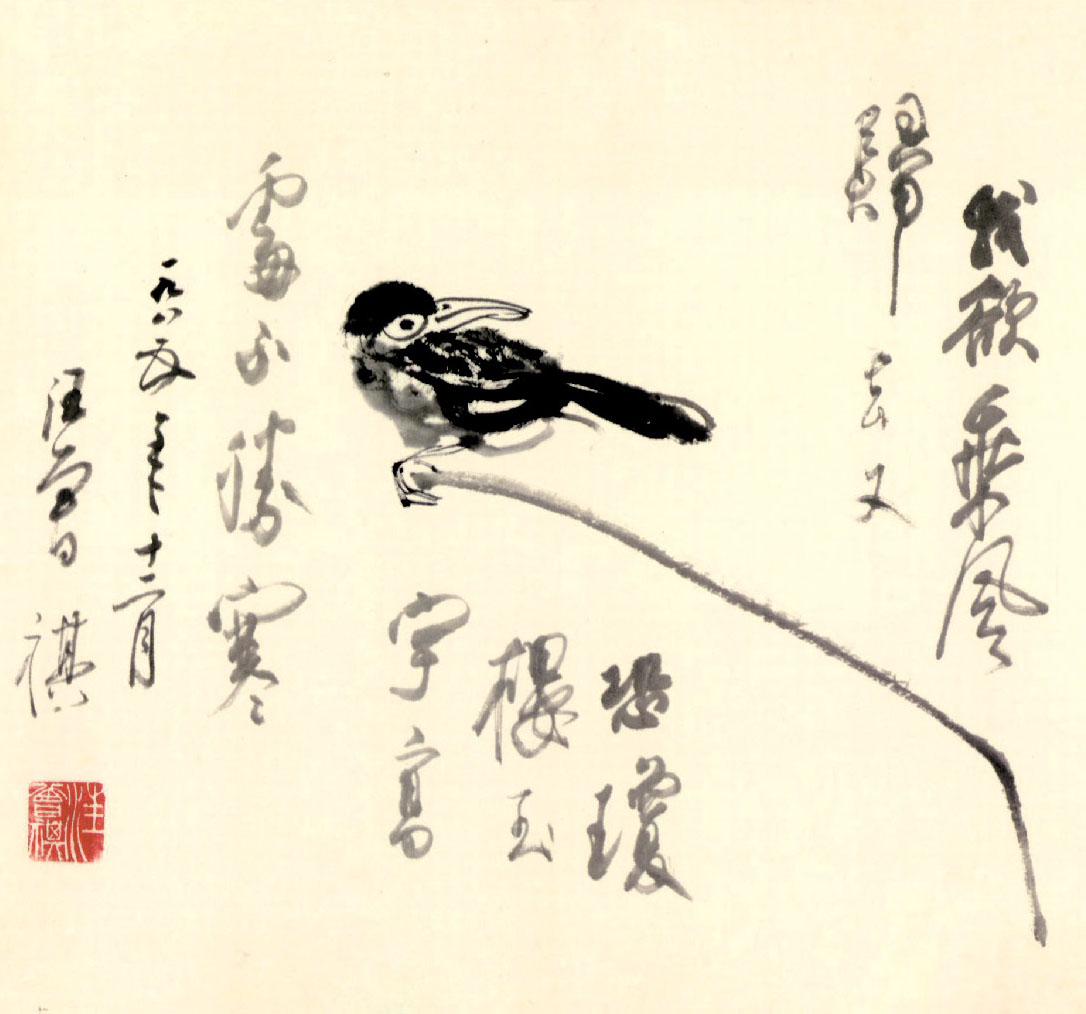 我欲乘風
歸去又
恐瓊
樓玉
宇高
處不勝寒
一九八五年十二月
汪曾祺
汪曾祺